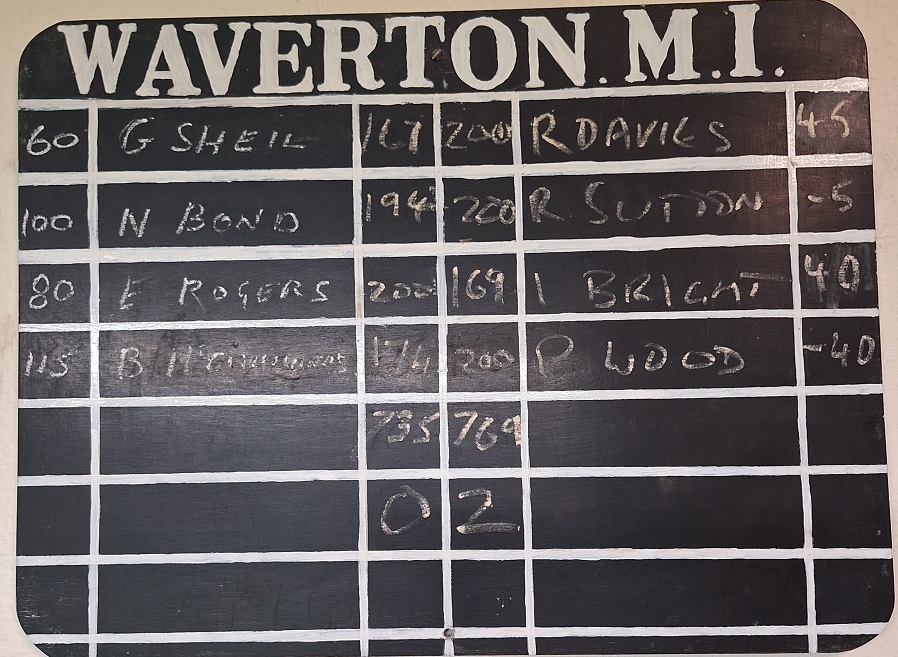 WAVERTON. M.I.
60 G SHEIL 167 200 R DAVIES 45
100 N BOND 194 200 R SUTTON -5
80 E ROGERS 200 169 I BRIGHT 40
115 B 174 200 P WOOD -40
735 769
0 2